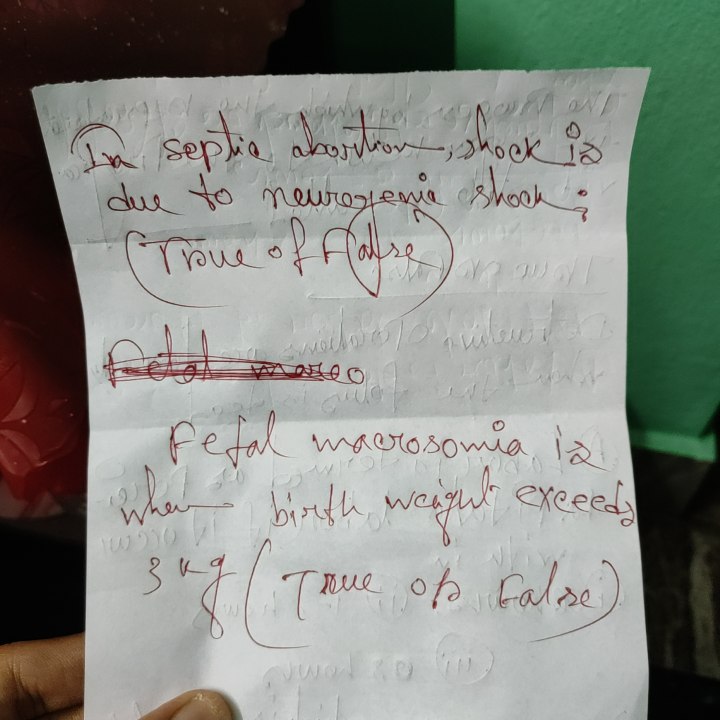 In septic abortion, shock is
due to neurogenic shock:
(True of False)
Fetal macroso
Fetal macrosomia is
when birth weight exceeds
3 kg (True or False)